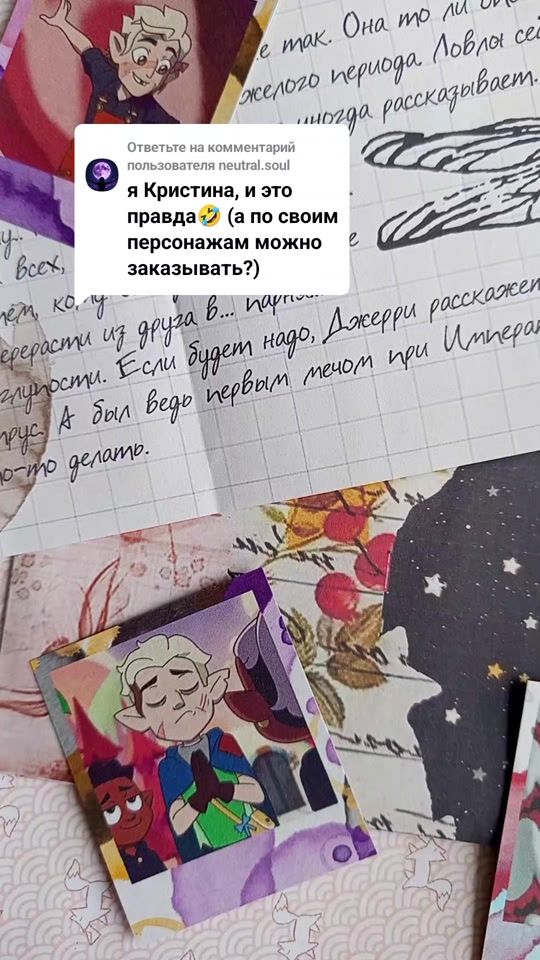 е так. Она то ли
желого периода. Ловлы
иногда рассказывает.
Ответьте на комментарий
пользователя neutral.soul
я Кристина, и это
правда🤣 (а по своим
персонажам можно
заказывать?)
всех,
перерасти из друга в...
глупости. Если будет надо, Джерри расскажет
А был ведь первым мечом при
делать.